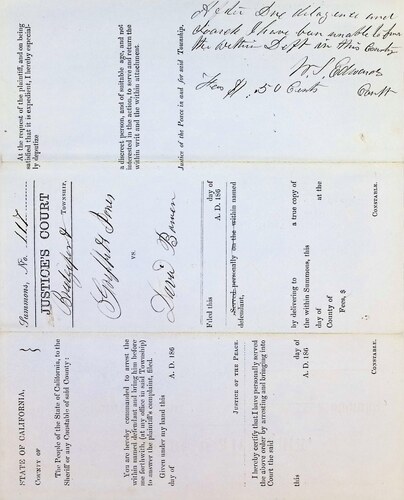 At the request of the plaintiff, and on being
satisfied that it is expedient, I hereby especial-
ly deputize
a discreet person, and of suitable age, and not
interested in the action, to serve and return the
within writ and the within attachment
Justice of the Peace in and for said Township.
After Due diligence and
Search I have been unable to find
the within Deft in this County
W. S. Edwards
Const
Fees $ .50 Cents
Summons, No. 1117
JUSTICE'S COURT
Bridgeport TOWNSHIP,
Griffith Jones
VS.
David Bowen
Filed this day of
A. D. 186
Served personally on the within named
defendant,
by delivering to a true copy of
the within Summons, this
day of at the
County of
Fees, $
CONSTABLE.
STATE OF CALIFORNIA, }
COUNTY OF
The People of the State of California, to the
Sheriff or any Constable of said County:
You are hereby commanded to arrest the
within named defendant and bring him before
me forthwith, (at my office in said Township)
to answer the plaintiff's complaint, filed.
Given under my hand this
day of A. D. 186
JUSTICE OF THE PEACE.
I hereby certify that I have personally served
the above order by arresting and bringing into
Court the said
this day of
A. D. 186
CONSTABLE.